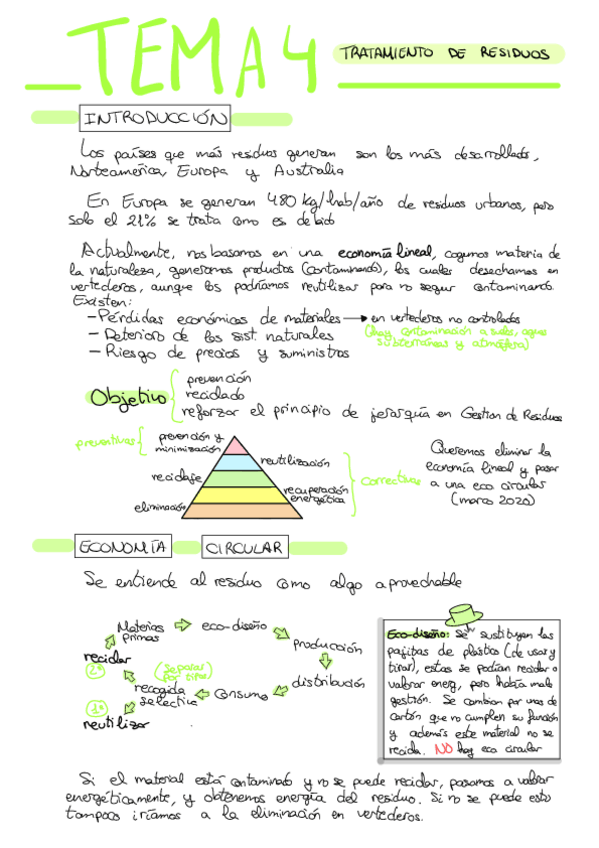 TEMA 4
TRATAMIENTO DE RESIDUOS
INTRODUCCIÓN
Los países que más residuos generan son los más desarrollados,
Norteamérica, Europa y Australia
En Europa se generan 480 kg/hab/año de residuos urbanos, pero
solo el 21% se trata como es debido
Actualmente, nos basamos en una economía lineal, cogemos materia de
la naturaleza, generamos productos (contaminando), los cuales desechamos en
vertederos, aunque los podríamos reutilizar para no seguir contaminando.
Existen:
- Pérdidas económicas de materiales → en vertederos no controlados
(hay contaminación a suelos, aguas
subterráneas y atmósfera)
- Deterioro de los sist. naturales
- Riesgo de precios y suministros
Objetivo
prevención
reciclado
reforzar el principio de jerarquía en Gestion de Residuos
preventivas
prevención y
minimización
reutilización
reciclaje
recuperación
energética
eliminación
correctivas
Queremos eliminar la
economía lineal y pasar
a una eco circular
(marzo 2020)
ECONOMÍA CIRCULAR
Se entiende al residuo como algo aprovechable
Materias
primas
eco-diseño
producción
distribución
consumo
(separar
por tipos)
recogida
selectiva
reciclar
2º
1º
reutilizar
Eco-diseño: Se sustituyen las
pajitas de plástico (de usar y
tirar), estas se podían reciclar o
valorar energ, pero había mala
gestión. Se cambian por unas de
cartón que no cumplen su función
y además este material no se
recicla. NO hay eco circular
Si el material está contaminado y no se puede reciclar, pasamos a valorar
energéticamente, y obtenemos energía del residuo. Si no se puede esto
tampoco iríamos a la eliminación en vertederos.